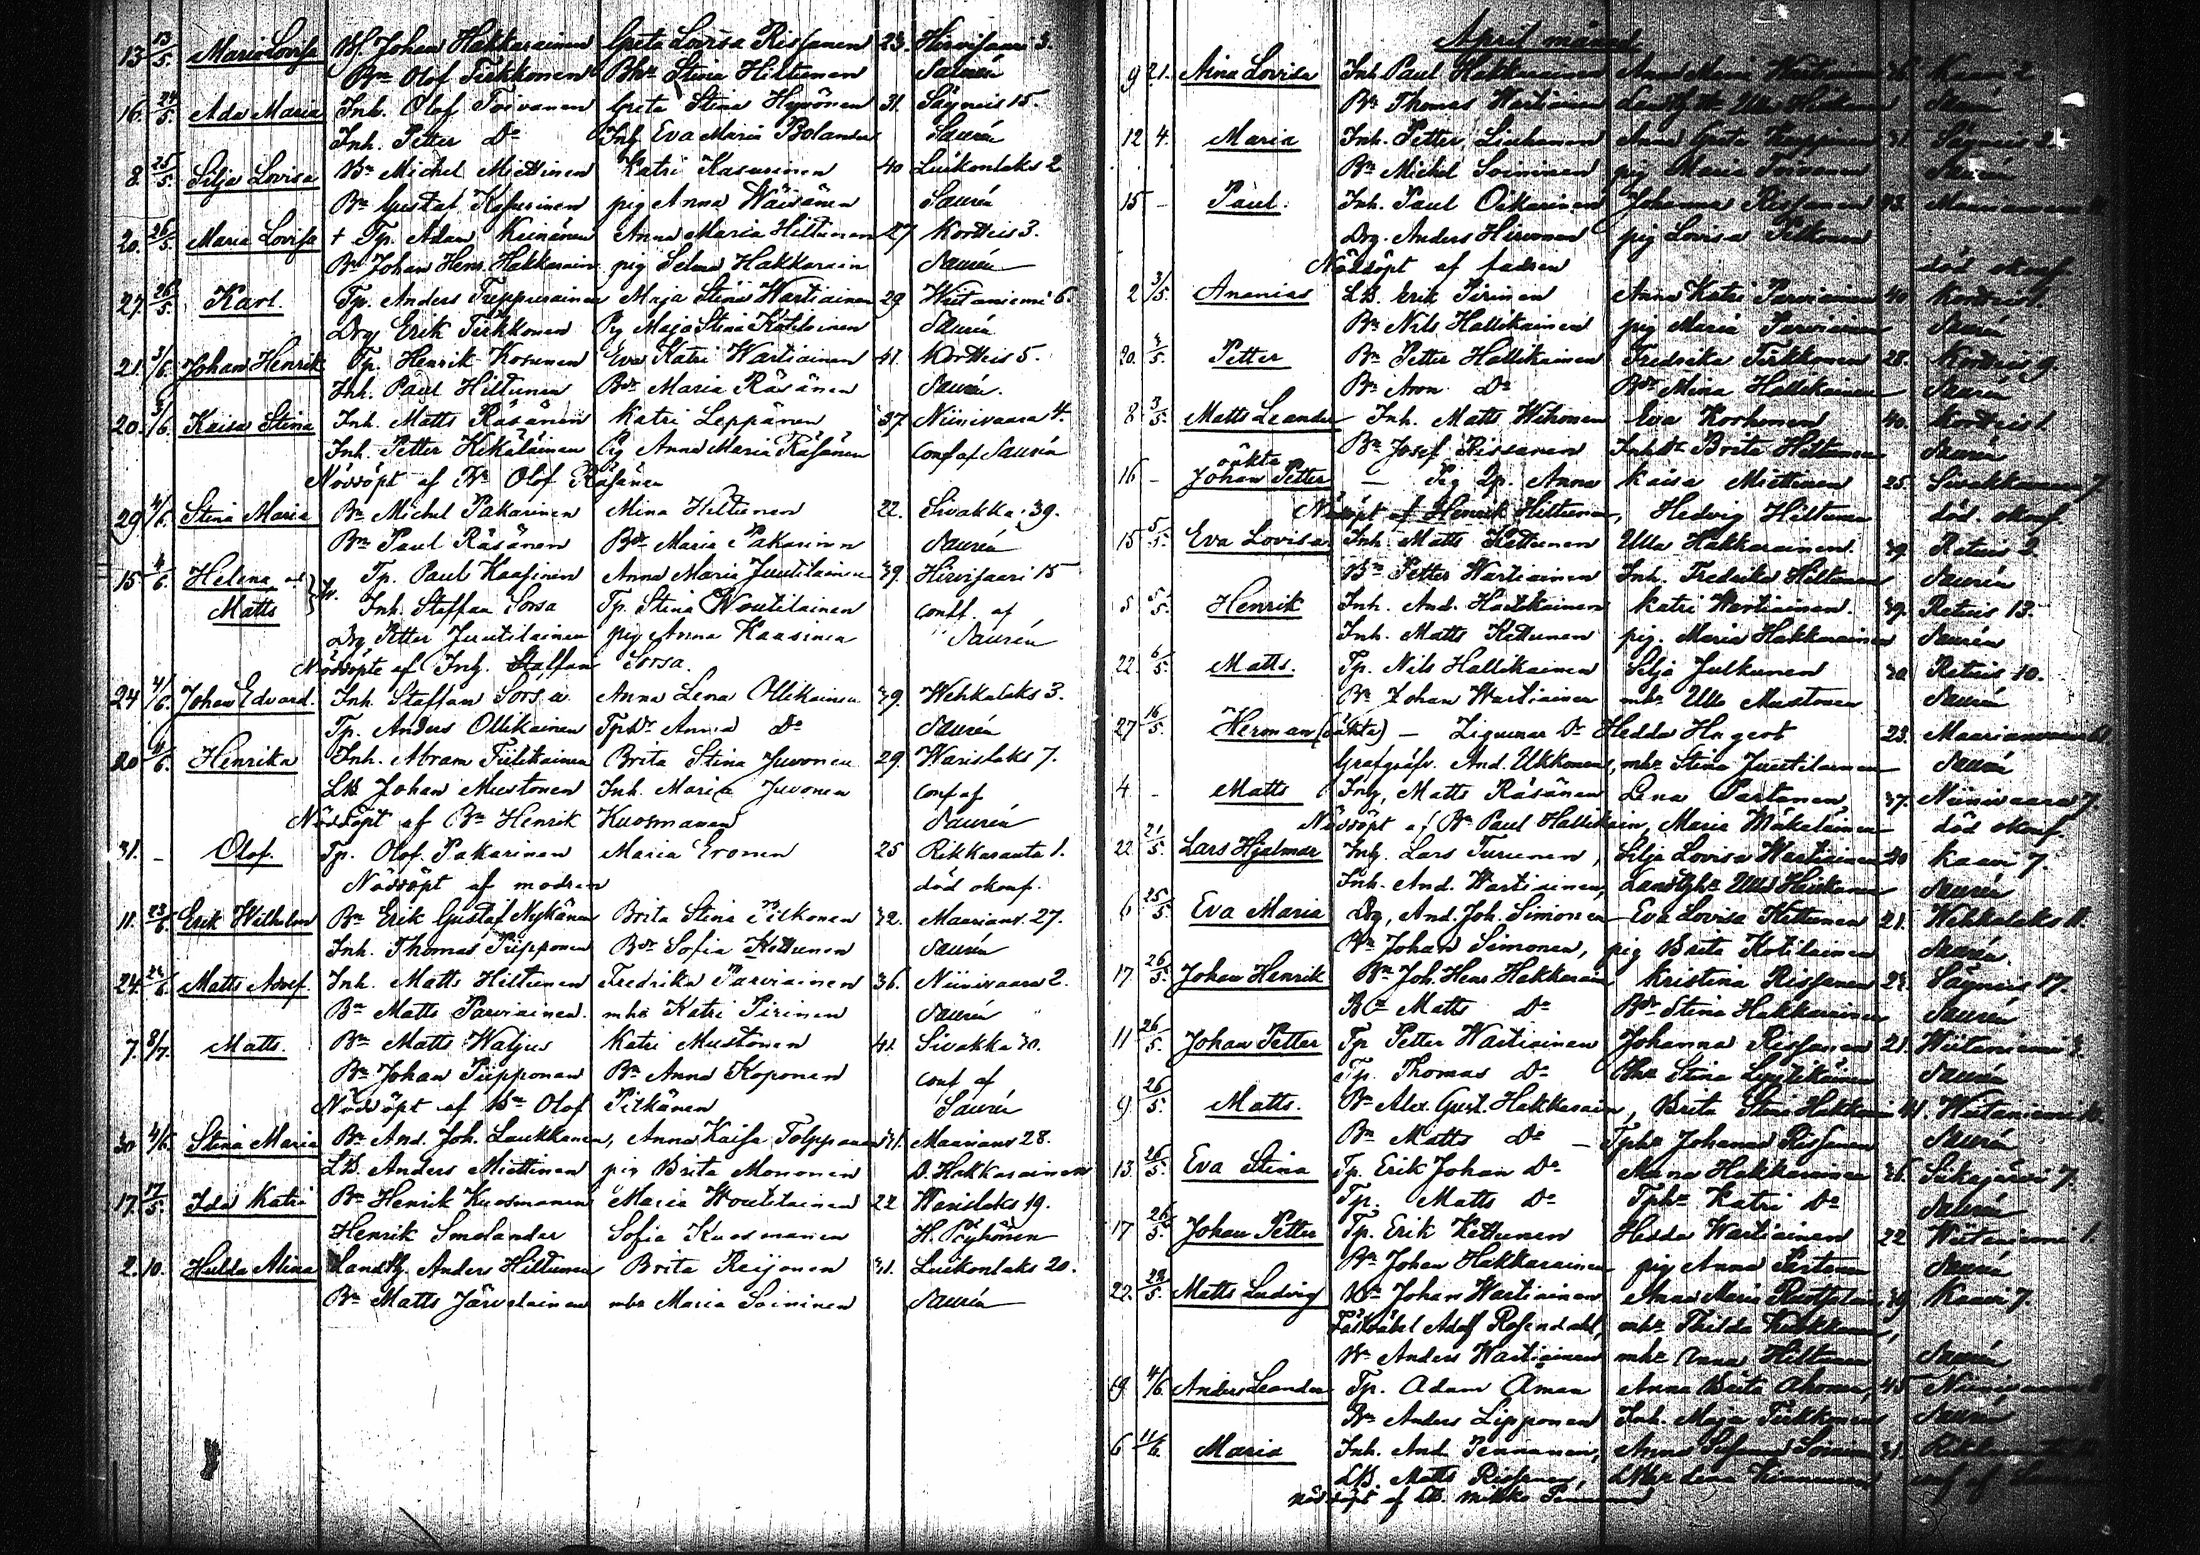 13 13/5. Maria Lovisa Bf. Johan Hakkarainen Greta Lovisa Rissanen 23. Hirvisaari 3.
Bn Olof Tirkkonen Bhr Stina Hiltunen Saurén
16. 24/5. Ada Maria Inh. Olof Toivanen Greta Stina Hyvönen 31. Säyneis 15.
Inh. Petter Do Inh. Eva Maria Bolander Saurén
8. 25/5. Silja Lovisa Bn Michel Miettinen Katri Kasurinen 40 Luikonlaks 2
Bn Gustaf Kasurinen pig Anna Wäisänen Saurén
20. 26/5. Maria Lovisa + Tp. Adam Keinänen Anna Maria Hiltunen 27 Kortteis 3.
Bn Johan Henr. Hakkarain. pig Selma Hakkarain Saurén
27. 26/5. Karl. Tp. Anders Tuppurainen Maja Stina Wartiainen 29. Wiitaniemi 6.
Drg Erik Tirkkonen Pig Maja Stina Kotilainen Saurén
21. 3/6. Johan Henrik Tp. Henrik Kosunen Eva Katri Wartiainen 41. Kortteis 5.
Inh. Paul Hiltunen Bdr Maria Räsänen Saurén.
20. 3/6. Kaisa Stina Inh. Matts Räsänen Katri Leppänen 37. Niinivaara 4.
Inh. Petter Hikäläinen Pig Anna Maria Räsänen conf af Saurén
Nöddöpt af Bn Olof Räsänen
29. 4/6. Stina Maria Bn Michel Pakarinen Mina Hiltunen 22. Sivakka 39.
Bn Paul Räsänen Bdr Maria Pakarinen Saurén
15 4/6. Helena och Tp. Paul Kaasinen Anna Maria Juutilainen 39. Hirvisaari 15
Matts Inh. Staffan Sorsa Tp. Stina Woutilainen conf. af
Drg Petter Juutilainen pig Anna Kaasinen Saurén
Nöddöpte af Inh. Staffan Sorsa.
24 4/6. Johan Edvard. Inh. Staffan Sorsa Anna Lena Ollikainen 39. Wehkalaks 3.
Tp. Anders Ollikainen Tpdr Anna Do Saurén
20 4/6. Henrika Inh. Abram Tiilikainen Brita Stina Juvonen 29. Warislaks 7.
LB. Johan Mustonen Inh. Maria Juvonen conf af
Nöddöpt af Bn Henrik Kuosmanen Saurén
31. - Olof. Tp. Olof Pakarinen Maria Eronen 25 Rikkaranta 1.
Nöddöpt af modren död okonf.
11. 23/6. Erik Wilhelm Bn Erik Gustaf Nykänen Brita Stina Pitkonen 32. Maarianv. 27.
Inh. Thomas Piipponen Bdr Sofia Kettunen Saurén
24. 24/6. Matts Adolf. Inh. Matts Hiltunen Fredrika Parviainen 36. Niinivaara 2.
Bn Matts Parviainen. mhr Katri Pirinen Saurén
7. 8/7. Matts. Bn Matts Waljus Katri Mustonen 41. Sivakka 30.
Bn Johan Piipponen Bn Anna Koponen conf af
Nöddöpt af Bn Olof Pitkänen Saurén
30 4/6. Stina Maria Bn And. Joh. Laukkanen, Anna Kaisa Tolppanen 31. Maarianv. 28.
LB. Anders Miettinen pig Brita Mononen D. Hakkarainen
17. 17/5. Ida Katri Bn Henrik Kuosmanen Maria Woutilainen 22 Warislaks 19.
Henrik Smolander Sofia Kuosmanen H. Pöyhönen
2. 10. Hulda Alina Landtbr. Anders Hiltunen Brita Reijonen 31. Luikonlaks 20.
Bn Matts Järvelainen mhr Maria Soininen Saurén
April månad
9 21. Aina Lovisa Inh. Paul Hakkarainen Anna Maria Wartiainen 36. Kaavi 2.
Bn Thomas Wartiainen Ulla Saurén
12 4. Maria Inh. Petter Anna Greta 31. Säyneis 2.
Bn Michel Soininen pig Maria Toivanen Saurén
15 - Paul. Inh. Paul Oikarinen Johanna Rissanen
Drg. Anders Hirvonen pig Lovisa Pitkonen
Nöddöpt af fadren död okonf.
2 3/5. Ananias LB. Erik Pirinen Anna Katri Parviainen 40. Kortteis
Bn Nils Hallikainen pig Maria Parviainen Saurén
20. 3/5. Petter Bn Petter Hallikainen Fredrika Tirkkonen 28. Kortteis 9.
Bn Aron Do Bdr Mina Hallikainen Saurén
8 3/5. Matts Leander Inh. Matts Wihonen Eva Korhonen 40. Kortteis 1
Bn Josef Rissanen Inhdr Brita Hiltunen Saurén
16 - oäkta Johan Petter - Pig Anna Kaisa Miettinen 25. 7
Nöddöpt af Henrik Hiltunen, Hedvig Hiltunen död okonf.
15 5/5. Eva Lovisa Inh. Matts Kettunen Ulla Hakkarainen. 39. Retuis 2.
Bn Petter Wartiainen Inh. Fredrika Hiltunen Saurén
5 5/5. Henrik Inh. And. Hartikainen Katri Wartiainen. 39. Retuis 13.
Inh. Matts Kettunen pig. Maria Hakkarainen Saurén
22. 6/5. Matts. Tp. Nils Hallikainen Silja Julkunen 30 Retuis 10.
Bn Johan Wartiainen mhr Ulla Mustonen Saurén
27 16/5. Herman (oäkta) - Hedda Hagert 23. Maarianvaara
And. Ukkonen, mhr Stina Juutilainen Saurén
4 - Matts Inh. Matts Räsänen Lena Partanen 37. Niinivaara 7.
Nöddöpt af Bn Paul Hallikain, Maria Mäkäläinen död okonf.
22. 21/5. Lars Hjalmar Inh. Lars Turunen, Silja Lovisa Wartiainen 40 Kaavi 7.
Inh. And. Wartiainen, Ulla Saurén
6 25/5. Eva Maria Drg. And. Joh. Simonen Eva Lovisa Kettunen 21. Wehkalaks 11.
Bn Johan Simonen, pig Brita Kotilainen Saurén.
17 26/5. Johan Henrik Bn Joh. Henr. Hakkarain Kristina Rissanen Säyneis 17.
Bn Matts Do Bdr Stina Hakkarainen Saurén
11 26/5. Johan Petter Tp Petter Wartiainen Johanna Rissanen 21. Wiitaniemi
Tp. Thomas Do Bhr Stina Saurén
9 26/5. Matts. Bn Alex. Gust. Hakkarain, Brita Stina Wiitaniemi
Bn Matts Do - Tphr Johanna Rissanen Saurén
13. 26/5. Eva Stina Tp. Erik Johan Do Hakkarainen 36. Siikajärvi 7.
Tp. Matts Do Tphr Katri Do Saurén
17 26/5. Johan Petter Tp. Erik Kettunen Hedda Wartiainen 22 Wiitaniemi 1.
Bn Johan Hakkarainen pig Anna Saurén
22. 28/5. Matts Ludvig Bn Johan Wartiainen Anna Maria 39 Kaavi 7.
Adolf Rosendahl, mhr Thilda
Bn Anders Wartiainen mhr Anna Hiltunen Saurén
19. 4/6. Anders Leander Tp. Adam Aman Anna Brita Ahonen, 45
Bn Anders Lipponen Inh. Maja Tirkkonen Saurén
6 11/6. Maria Inh. And. Pennanen, Anna 31.
LB. Matts Rissanen, Lena conf af
nöddöpt af LB. Mikko